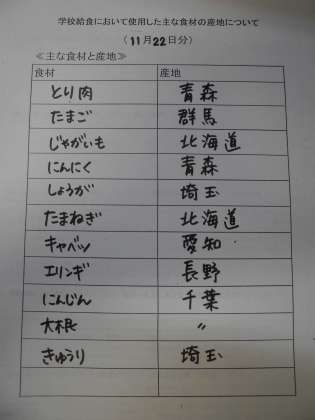 学校給食において使用した主な食材の産地について
(11月22日分)
≪主な食材と産地≫
食材 産地
とり肉 青森
たまご 群馬
じゃがいも 北海道
にんにく 青森
しょうが 埼玉
たまねぎ 北海道
キャベツ 愛知
エリンギ 長野
にんじん 千葉
大根 〃
きゅうり 埼玉